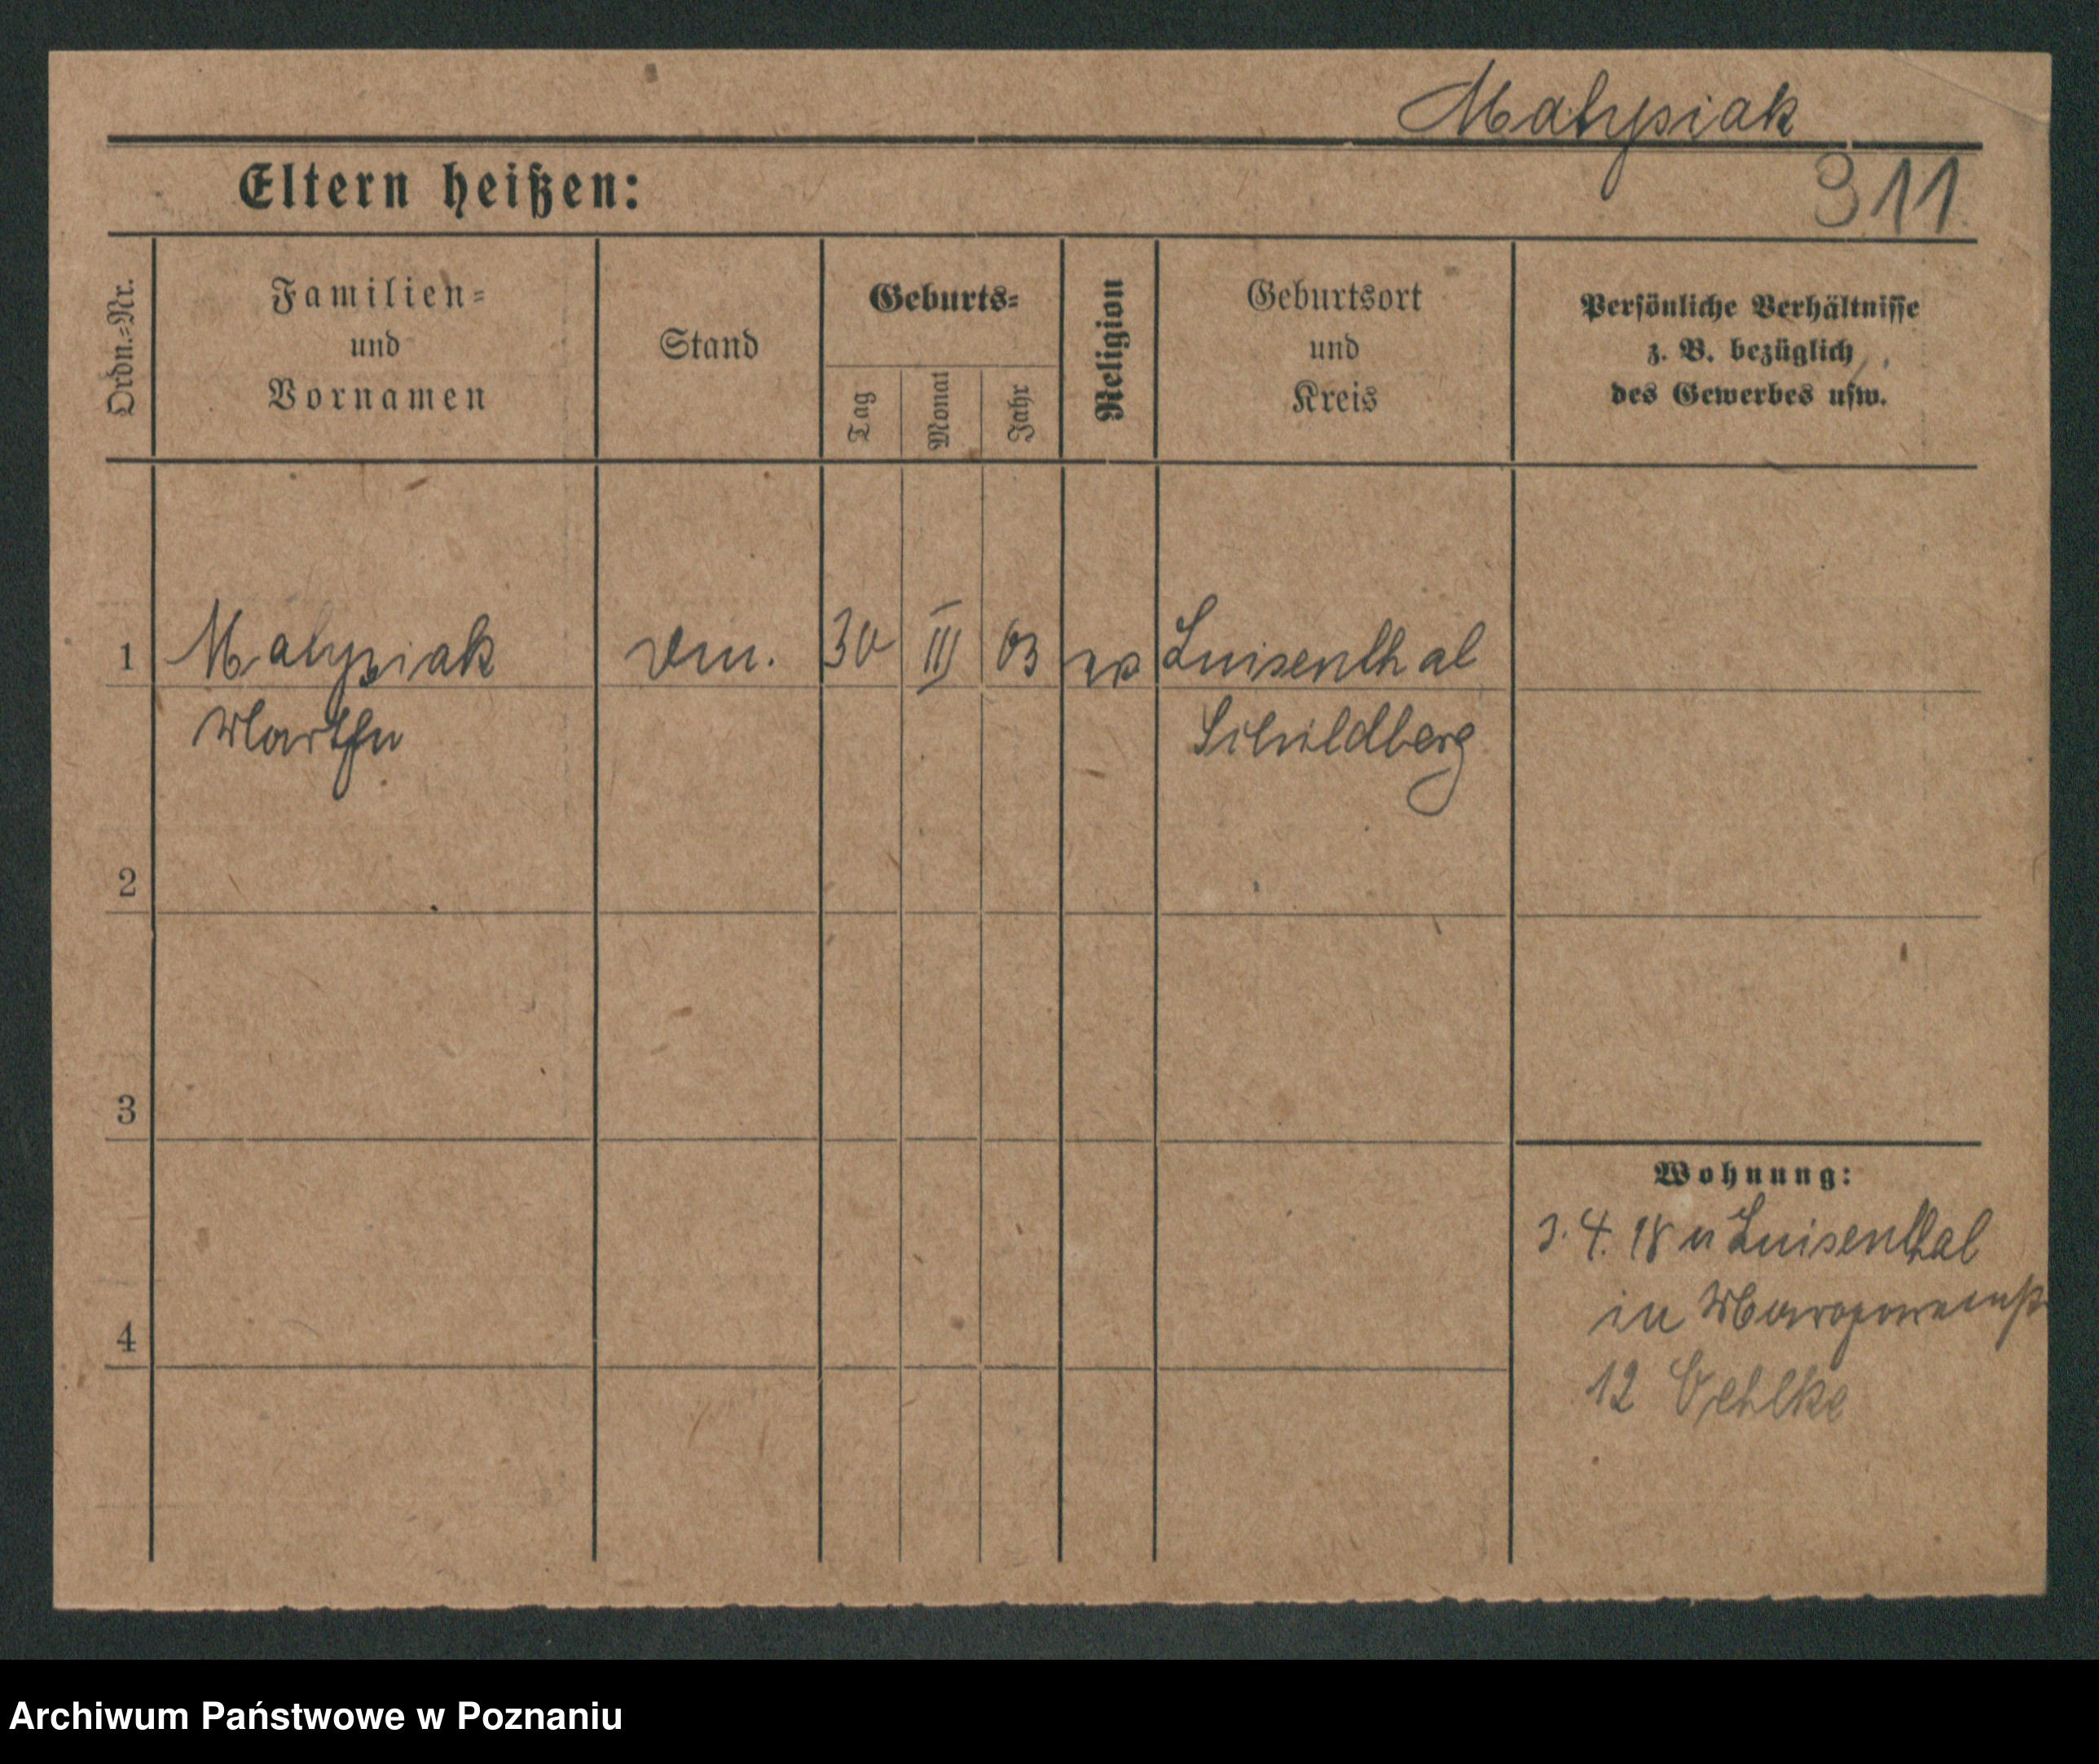 Malysiak
Eltern heißen:
311
Ordn.=Nr.
Familien=
und
Vornamen
Stand
Geburts=
Tag
Monat
Jahr
Religion
Geburtsort
und
Kreis
Persönliche Verhältnisse
z. B. bezüglich
des Gewerbes usw.
1
Malysiak
30
III
03
Luisenthal
Martha
Schildberg
2
3
4
Wohnung:
3. 4. 18 Luisenthal
in
12 Oehlke
Archiwum Państwowe w Poznaniu